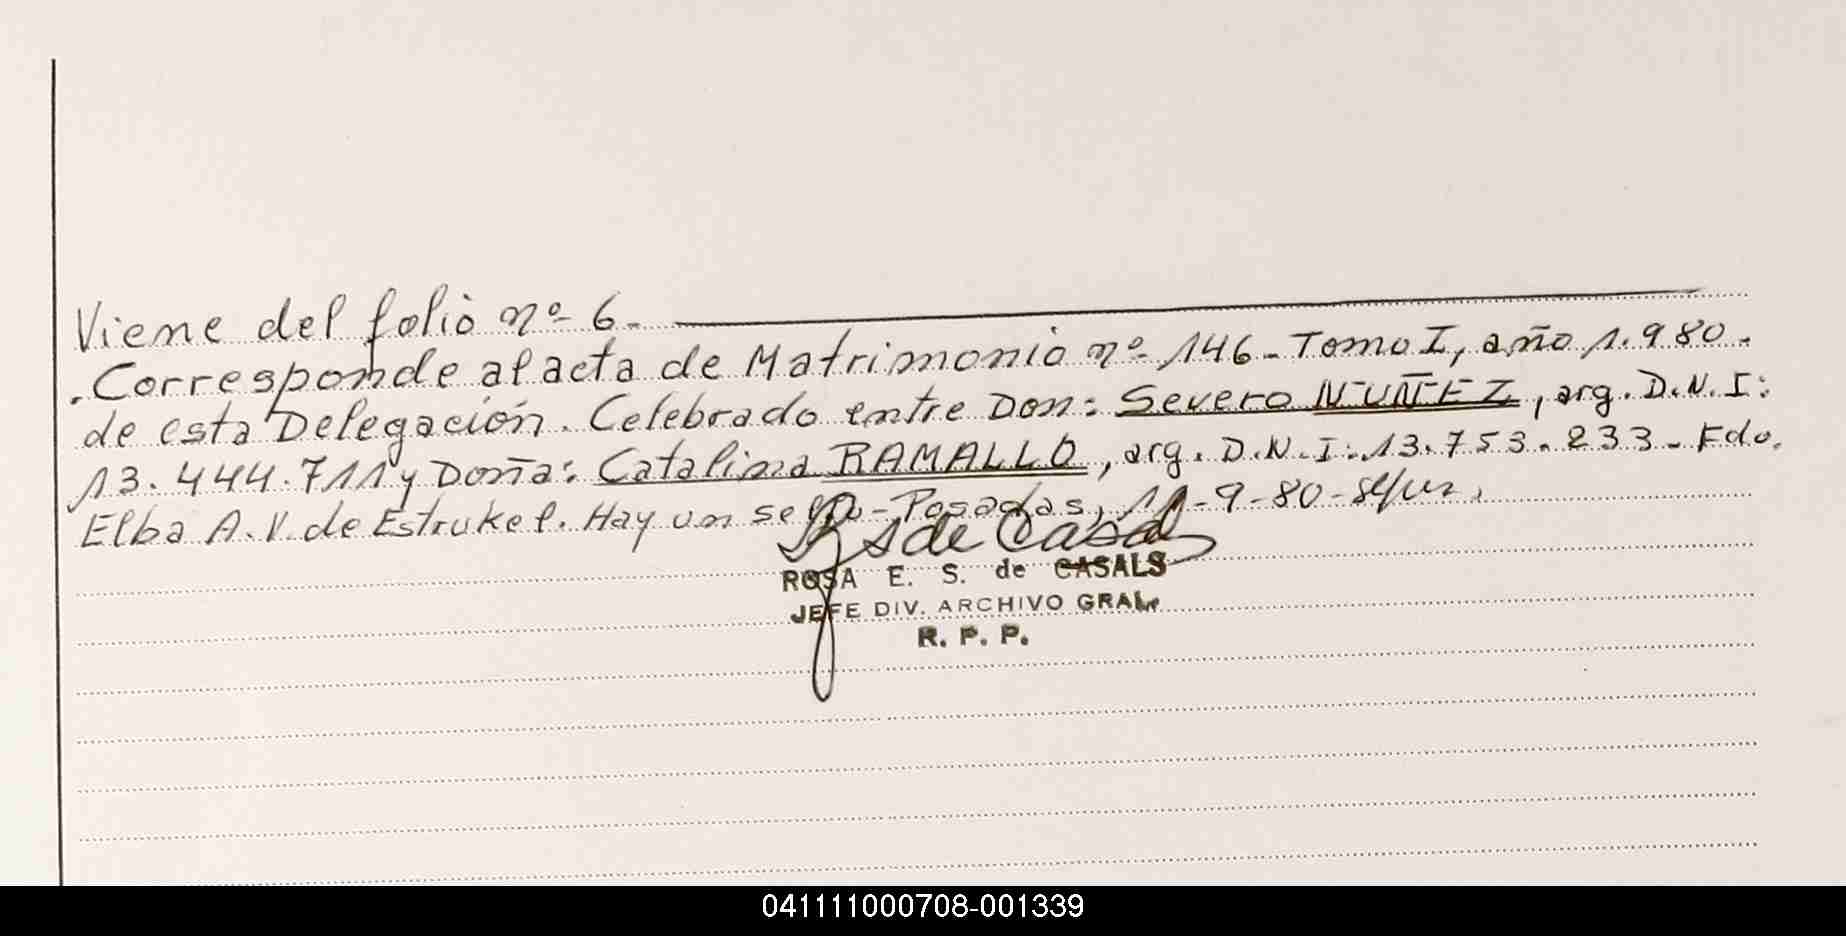 Viene del folio nº 6.
. Corresponde al acta de Matrimonio nº 146 - Tomo I, año 1.980.
de esta Delegación. Celebrado entre Don: Severo NUÑEZ, arg. D.N.I:
13.444.711 y Doña: Catalina RAMALLO, arg. D.N.I: 13.753.233 - Fdo.
Elba A.V. de Estrukel. Hay un sello - Posadas, 11-9-80 -
R S de Casals
ROSA E. S. de CASALS
JEFE DIV. ARCHIVO GRAL.
R. P. P.
041111000708-001339